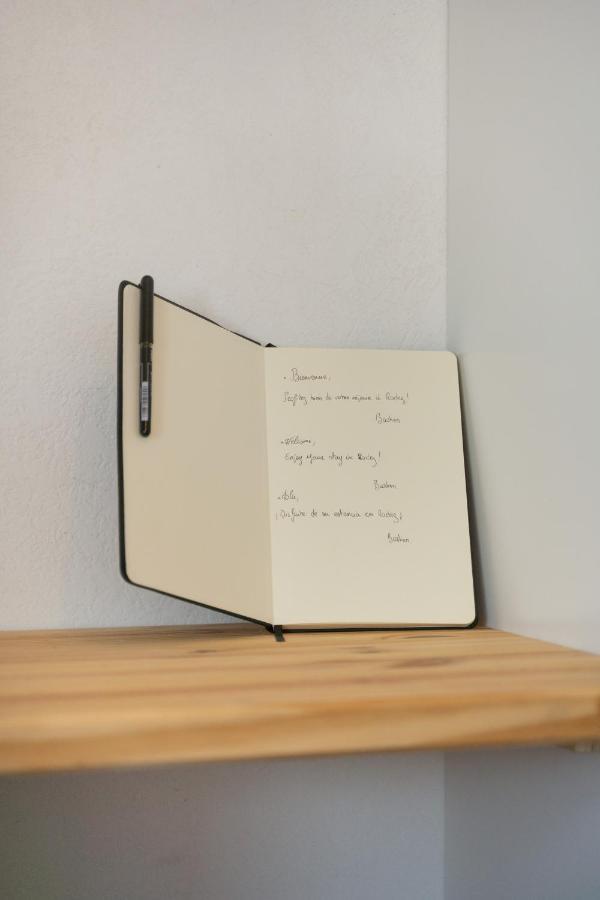 - Bienvenue,
Profitez bien de votre séjour à Rodez!
Bastien
- Welcome,
Enjoy your stay in Rodez!
Bastien
- Hola,
¡Disfrute de su estancia en Rodez!
Bastien